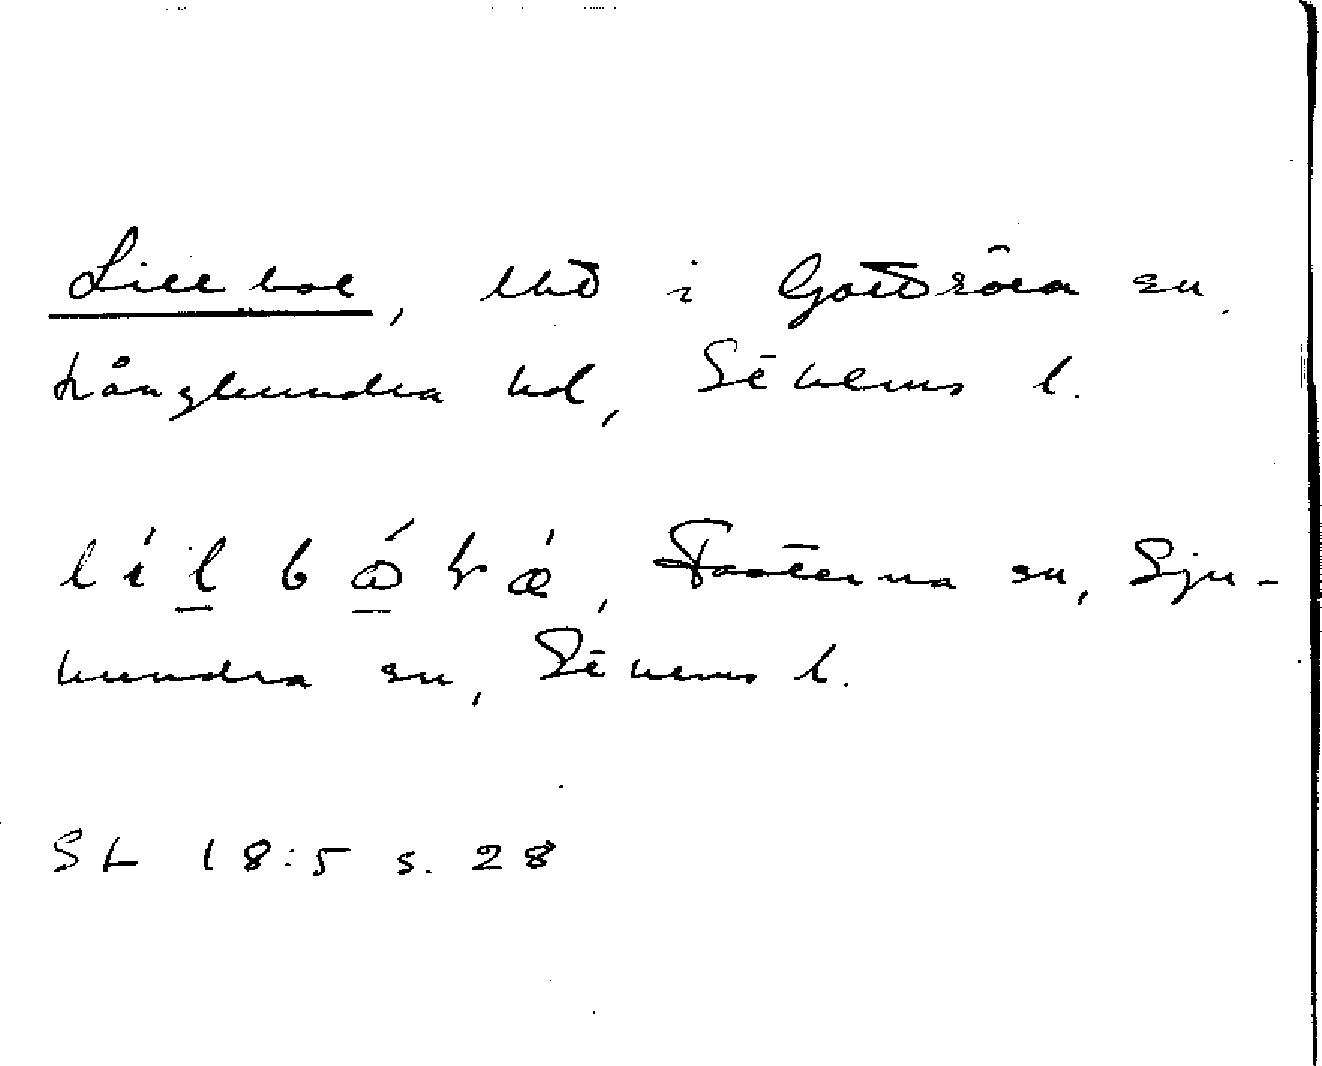 Lillbol, lhd i Gottröra sn.
Långhundra hd, Sthlms l.
Fasterna sn, Sju-
hundra sn, Sthlms l.
SL 18:5 s. 28